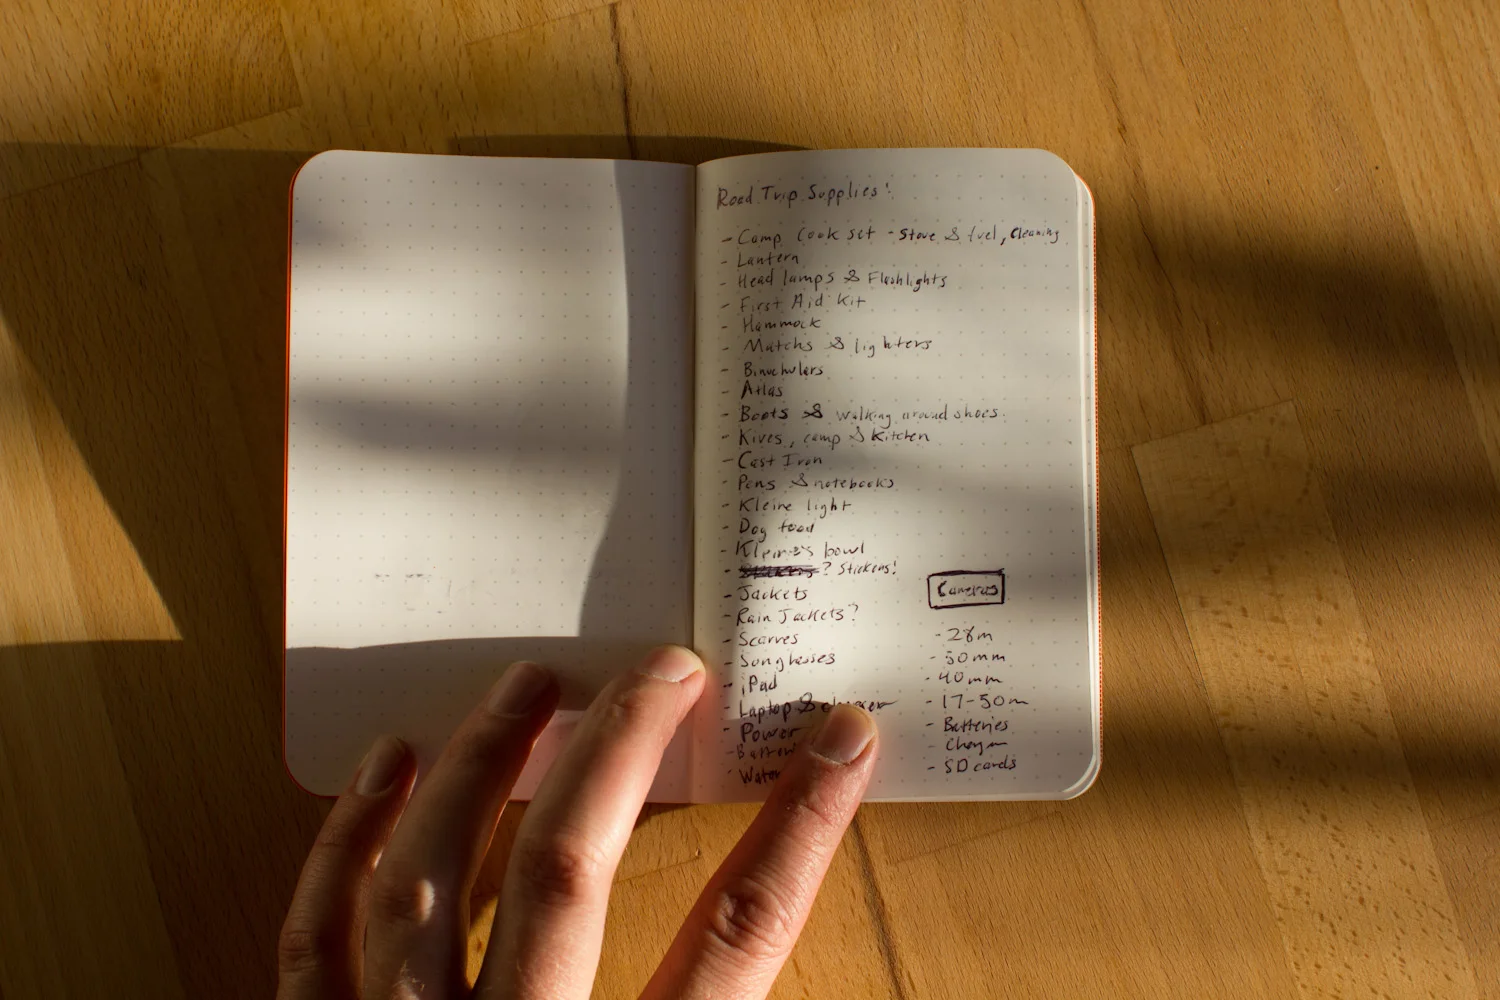 Road Trip Supplies!
- Camp Cook set - Stove & fuel, Cleaning
- Lantern
- Head lamps & Flashlights
- First Aid Kit
- Hammock
- Matchs & lighters
- Binochulers
- Atlas
- Boots & walking around shoes.
- Kives, camp & Kitchen
- Cast Iron
- Pens & notebooks
- Kleine light
- Dog food
- Kleine's bowl
- ? Stickers!
- Jackets
- Rain Jackets?
- Scarves
- Sunglasses
- iPad
- Laptop & charger
- Power
-
- Water
Cameras
- 28m
- 50mm
- 40mm
- 17-50m
- Batteries
-
- SD cards